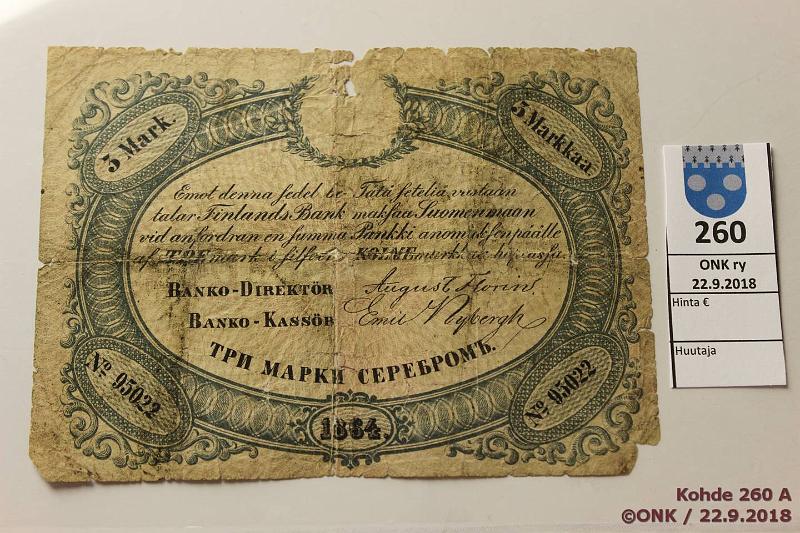 3 Mark.
3 Markkaa
Emot denna sedel be- Tätä seteliä vastaan
talar Finlands Bank maksaa Suomenmaan
vid anfordran en summa Pankki anomuksen päälle
af TRE mark i silfver. KOLME markkaa hopeassa.
BANKO-DIREKTÖR August Florin.
BANKO-KASSÖR Emil Nybergh
ТРИ МАРКИ СЕРЕБРОМЪ.
No. 95022
No. 95022
1864.
260
ONK ry
22.9.2018
Hinta €
Huutaja
Kohde 260 A
©ONK / 22.9.2018